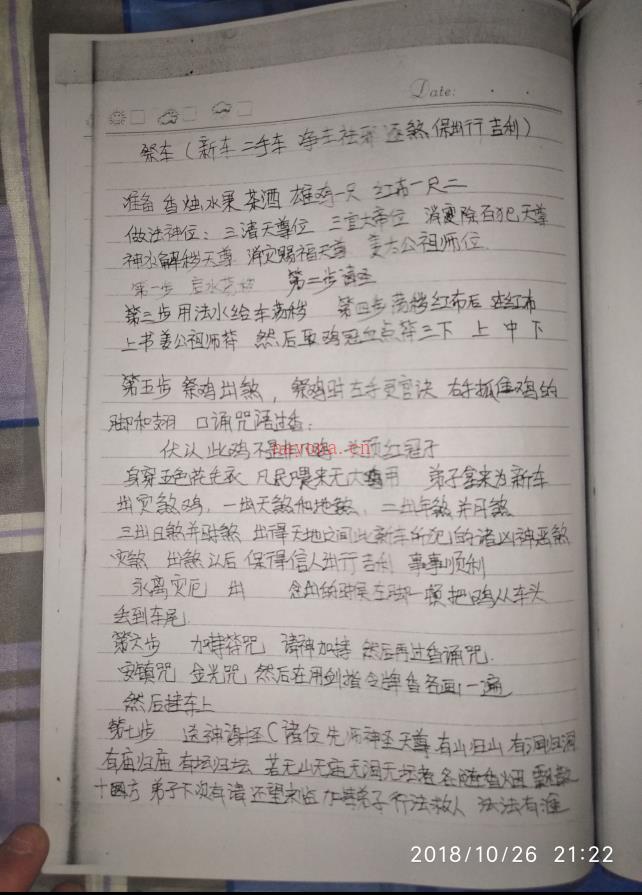 Date:
祭车（新车二手车 净车祛邪逐煞 保出行吉利）
准备 香烛水果茶酒 雄鸡一只 红布一尺二
做法神位：三清天尊位 三官大帝位 消灾除百犯天尊
神水解秽天尊 消灾赐福天尊 姜太公祖师位
第一步 启水荡秽 第二步请圣
第三步用法水给车荡秽 第四步荡秽红布后 在红布
上书姜公祖师符 然后取鸡冠血点符三下 上 中 下
第五步 祭鸡出煞，祭鸡时左手 官诀 右手抓住鸡的
脚和翅 口诵咒语过香：
伏认此鸡不是非凡鸡 头顶红冠子
身穿五色花毛衣 凡民 来无大 用 弟子拿来为新车
出灾煞鸡，一出天煞和地煞，二出年煞并月煞
三出日煞并时煞 出得天地之间此新车所犯的诸凶神恶煞
灾煞 出煞以后 保得信人出行吉利 事事顺利
永离灾厄 出 念出的时候左脚一顿把鸡从车头
丢到车尾
第六步 加持符咒 请神加持 然后再过香诵咒.
安镇咒 金光咒 然后在用剑指令牌香各画一遍
然后挂车上
第七步 送神诵经（诸位先师神圣天尊 有山归山 有洞归洞
有庙归庙 有坛归坛 若无山无庙无洞无坛者 各随香烟 飘散
十四方 弟子下次有请 还望来临 加持弟子行法救人 法法有准
nayona.cn
2018/10/26 21:22